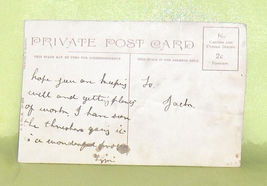 PRIVATE POST CARD
THIS SPACE MAY BE USED FOR CORRESPONDENCE
THIS SPACE IS FOR ADDRESS ONLY
CANADA AND
UNITED STATES
2c
FOREIGN
hope you are keeping
well and getting plenty
of work. I have seen
the threshers going it
is a wonderful
To
Jack